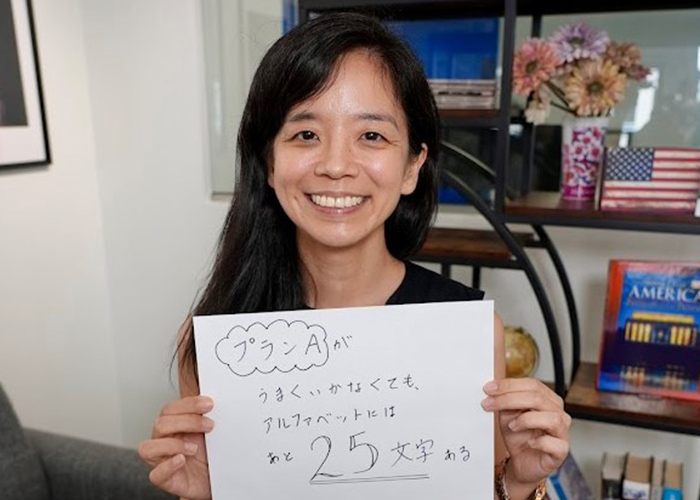 プランAが
うまくいかなくても、
アルファベットには
あと25文字ある
AMERICA